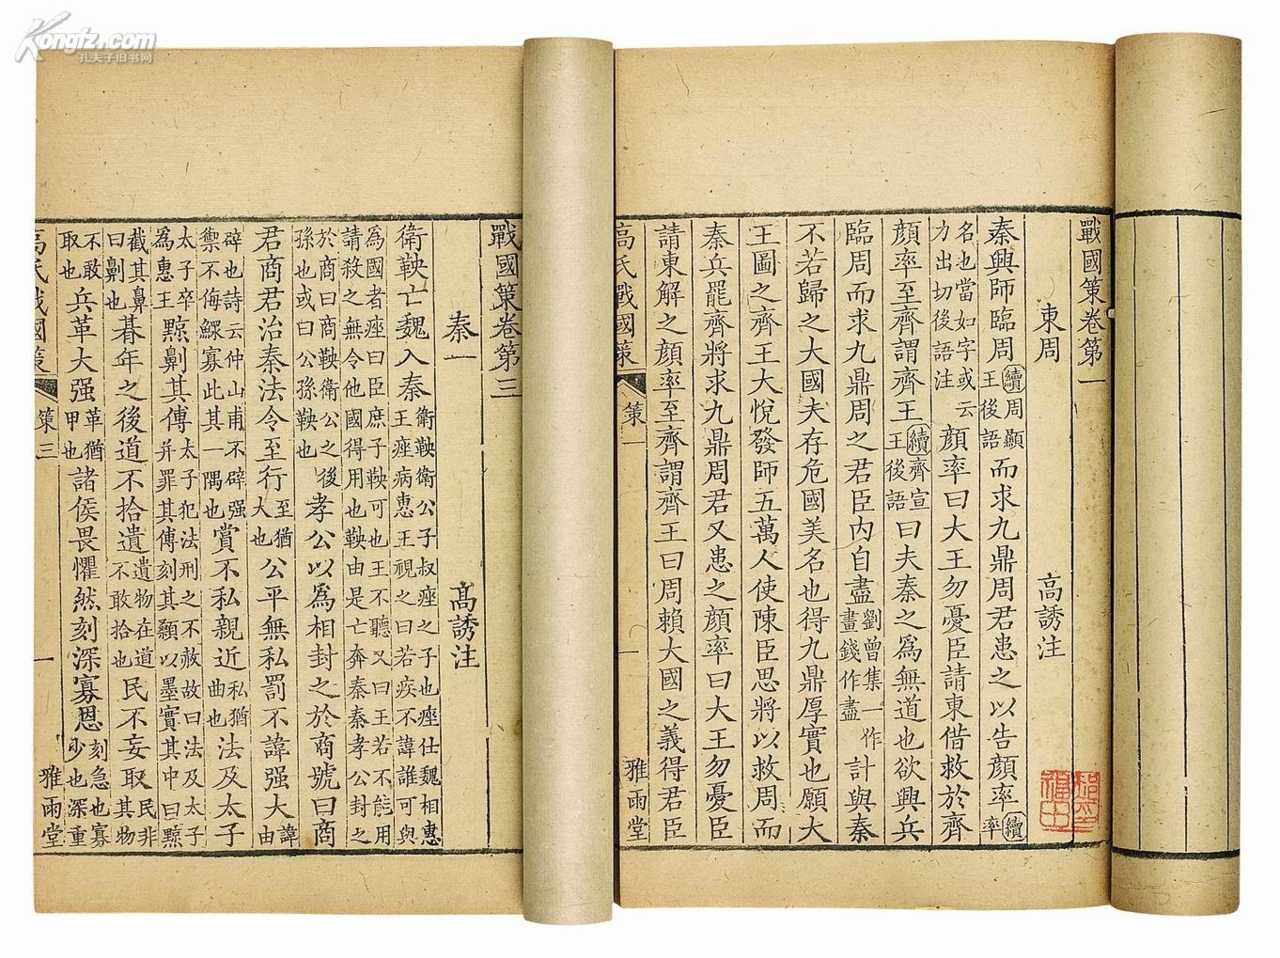 戰國策卷第一
東周 高誘注
秦興師臨周續周顯王後語而求九鼎周君患之以告顏率續率
名也當如字或云力出切後語注顏率曰大王勿憂臣請東借救於齊
顏率至齊謂齊王續齊宣王後語曰夫秦之爲無道也欲興兵
臨周而求九鼎周之君臣內自盡劉曾集一作畫錢作盡計與秦
不若歸之大國夫存危國美名也得九鼎厚實也願大
王圖之齊王大悅發師五萬人使陳臣思將以救周而
秦兵罷齊將求九鼎周君又患之顏率曰大王勿憂臣
請東解之顏率至齊謂齊王曰周賴大國之義得君臣
高氏戰國策 策一 一 雅雨堂
戰國策卷第三
秦一 高誘注
衛鞅亡魏入秦衛鞅衛公子叔痤之子也痤仕魏相惠王痤病惠王視之曰若疾不諱誰可與
爲國者痤曰臣庶子鞅可也王不聽又曰王若不能用請殺之無令他國得用也鞅由是亡奔秦秦孝公封之
於商曰商鞅衛公之後孫也或曰公孫鞅也孝公以爲相封之於商號曰商
君商君治秦法令至行至猶大也公平無私罰不諱强大諱由
辟也詩云仲山甫不辟强禦不侮鰥寡此其一隅也賞不私親近私猶曲也法及太子
太子卒爲惠王黥劓其傅太子犯法刑之不赦故曰法及太子并罪其傅刻其顙以墨實其中曰黥
截其鼻曰劓也朞年之後道不拾遺遺物在道不敢拾也民不妄取民非其物
不敢取也兵革大强革猶甲也諸侯畏懼然刻深寡恩刻急也寡少也深重
高氏戰國策 策三 一 雅雨堂
Kongfz.com
孔夫子旧书网